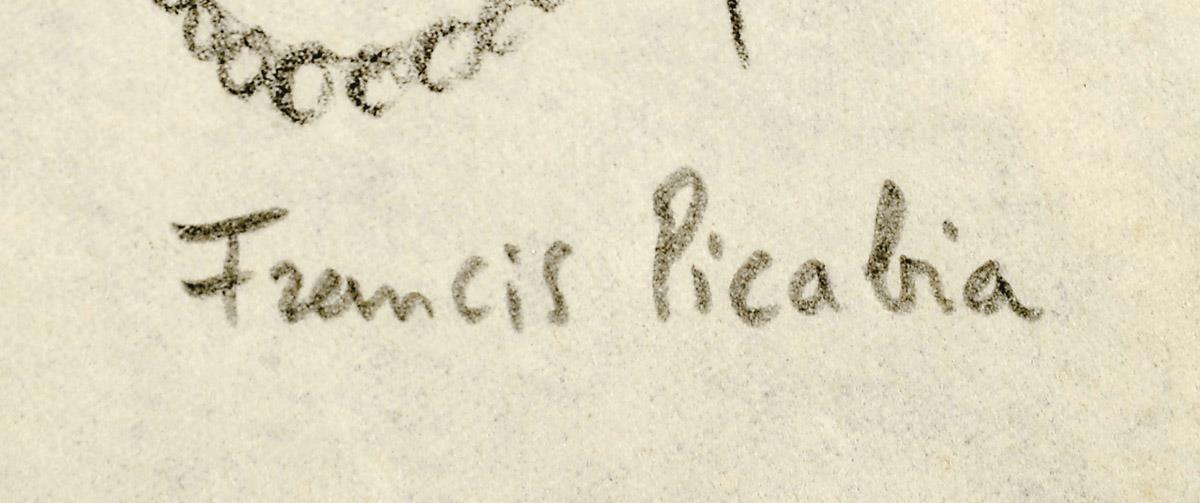 Francis Picabia